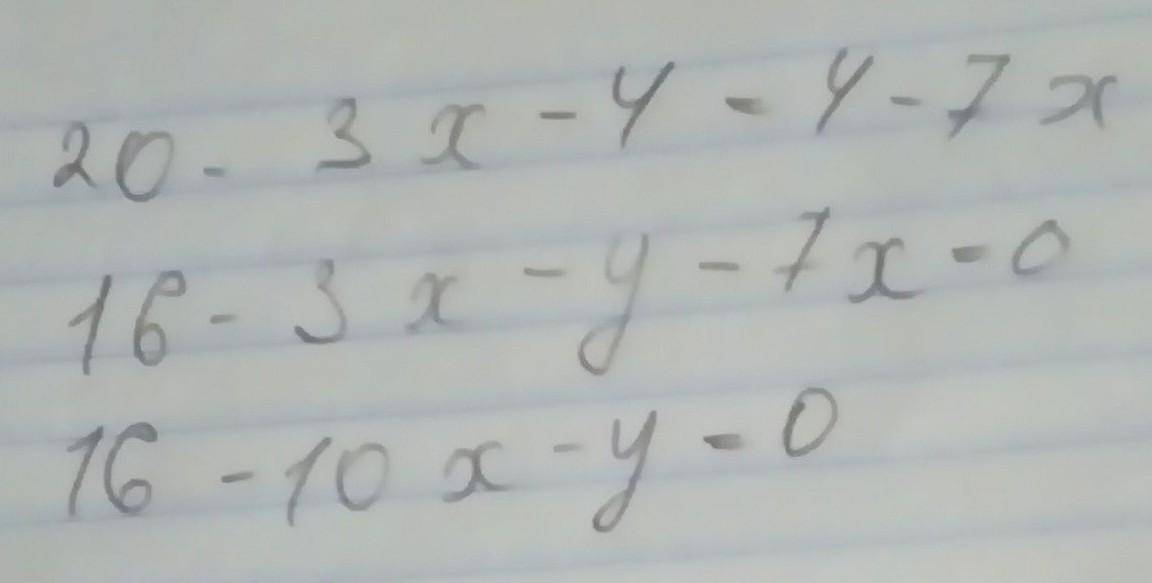 20 - 3x - 4 - 4 - 7x
16 - 3x - y - 7x - 0
16 - 10x - y - 0